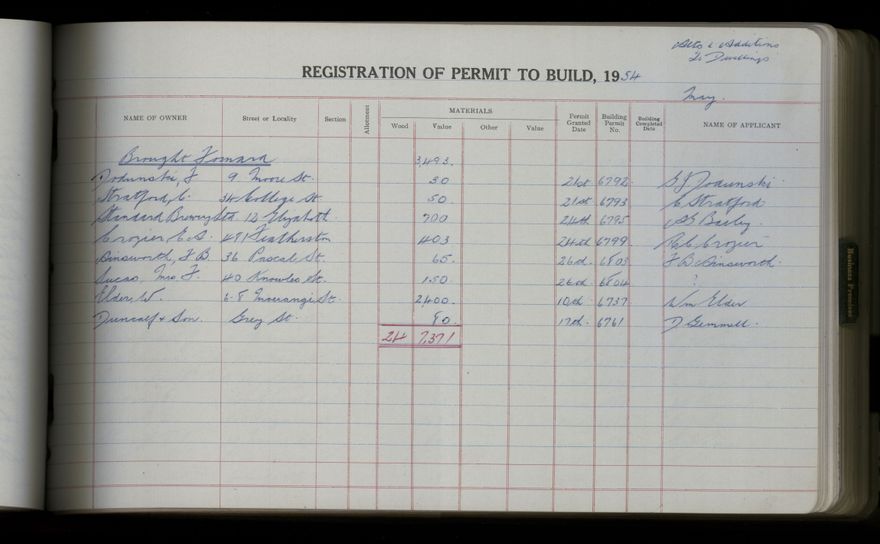 Alts & Additions
To Dwellings
REGISTRATION OF PERMIT TO BUILD, 1954
May.
NAME OF OWNER Street or Locality Section Allotment MATERIALS Permit Granted Date Building Permit No. Building Completed Date NAME OF APPLICANT
Wood Value Other Value
Brought Forward 3,493.
9 Moore St. 30 21st 6792
Stratford, C. 34 College St. 50. 21st 6793 C Stratford
Standard Brewing Ltd 12 Elizabeth 700 24th 6795
Crozier E.A. 491 Featherston 403 24th 6799 Crozier
Binsworth, F B. 36 Pascal St. 65. 26th 6803 F B Binsworth.
Lucas, Mrs F. 40 Knowles St. 150. 26th 6804 ?
Elder, W. 68 St. 2400. 10th 6737 Wm Elder
Duncalf & Son. Grey St. 80. 17th 6761 D Gemmell.
24 7,371
Business Premises